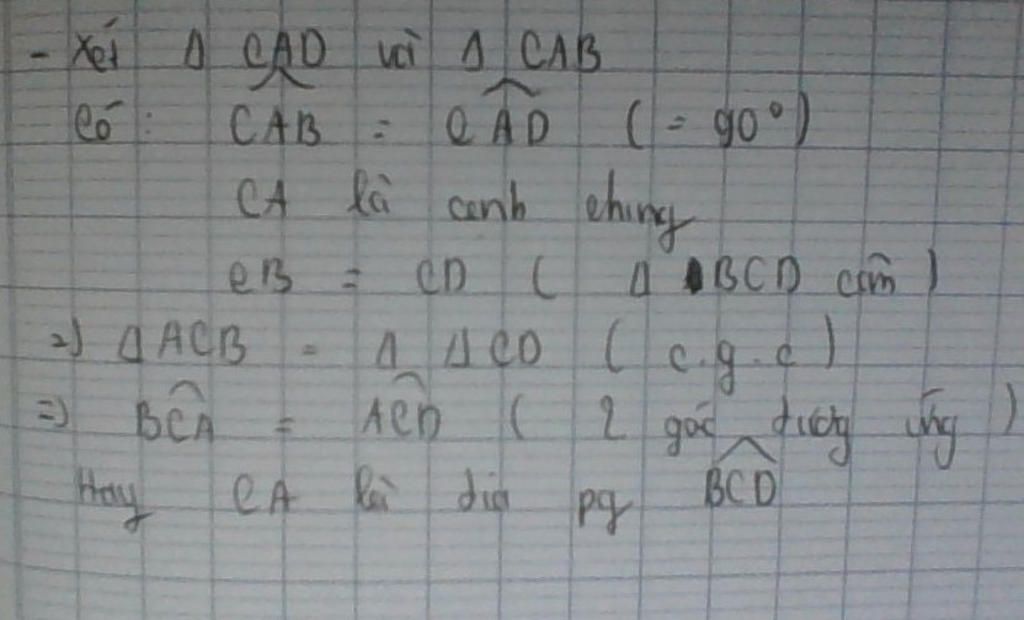 - Xét Δ CAD và Δ CAB
Có : CAB = CAD ( = 90°)
CA là cạnh chung
CB = CD ( Δ BCD cân )
=) Δ ACB = Δ ACD ( c.g.c )
=) BCA = ACD ( 2 góc tương ứng )
Hay CA là tia pg BCD